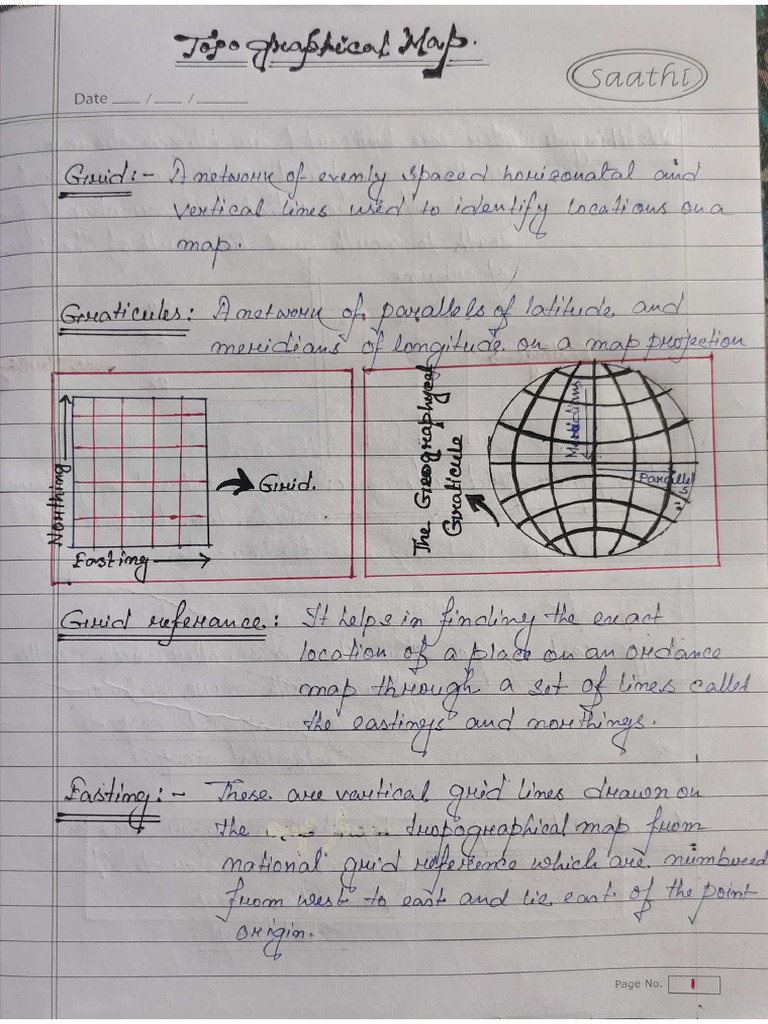 Topographical Map.
saathi
Date ___/___/_____
Grid:- A network of evenly spaced horizonatal and
vertical lines used to identify locations on a
map.
Graticules: A network of parallels of latitude and
meridians of longitude on a map projection
Northing
Grid.
Easting
The Geographycal
Graticule
Meridians
Parallel's
Grid referance: It helps in finding the exact
location of a place on an ordance
map through a set of lines called
the eastings and northings.
Easting:- These are vartical grid lines drawn on
the tropographical map from
national grid reference which are numbered
from west to east and lie east of the point
origin.
Page No. 1